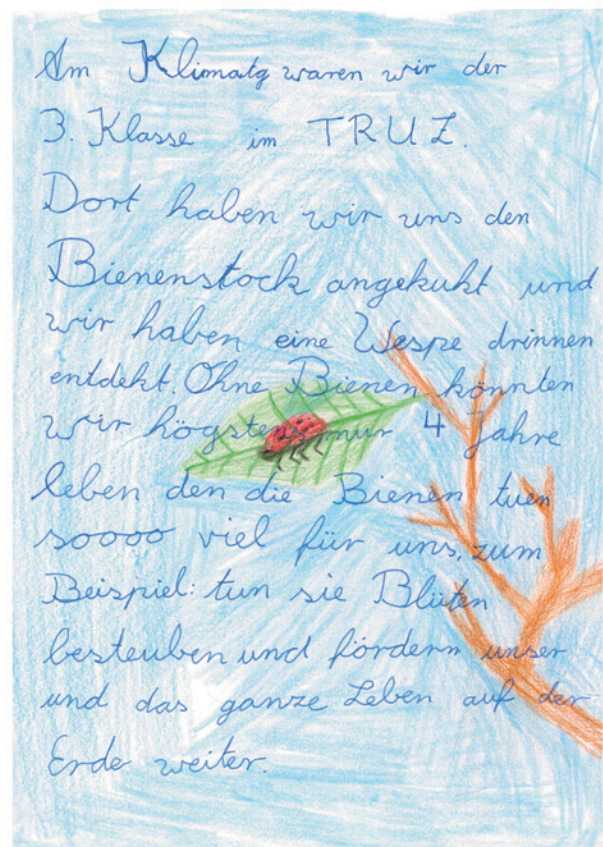 Am Klimatg waren wir der
3. Klasse im TRUZ.
Dort haben wir uns den
Bienenstock angekukt und
wir haben eine Wespe drinnen
entdekt. Ohne Bienen könnten
wir högstens nur 4 Jahre
leben den die Bienen tuen
soooo viel für uns, zum
Beispiel: tun sie Blüten
besteuben und fördern unser
und das ganze Leben auf der
Erde weiter.